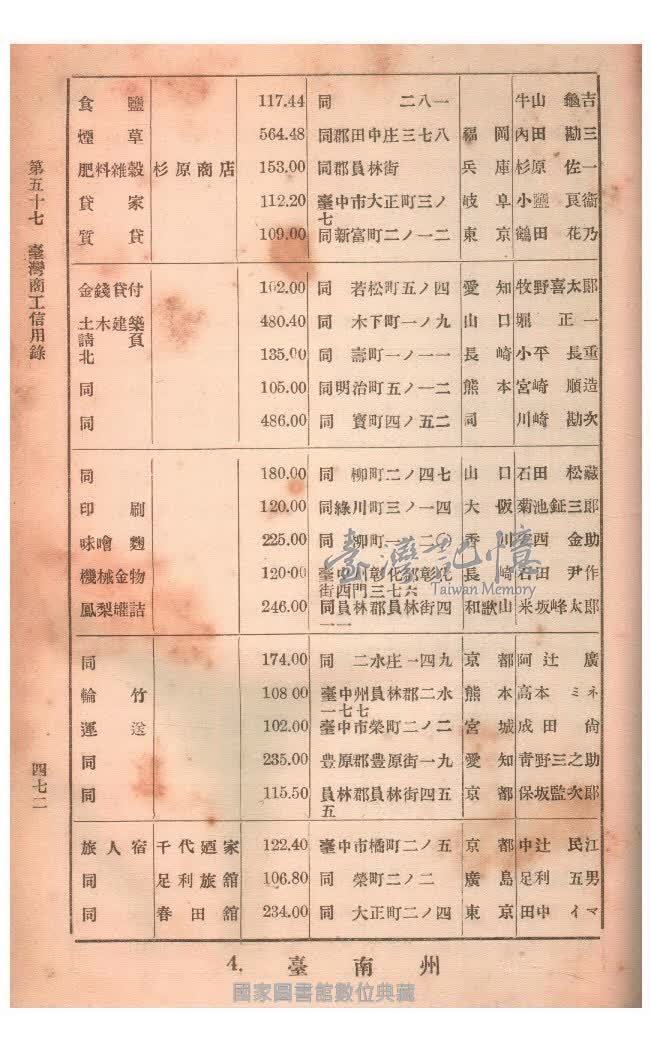 第五十七 臺灣商工信用錄
四七二
食鹽 117.44 同 二八一 牛山龜吉
煙草 564.48 同郡田中庄三七八 福岡 內田勘三
肥料雜穀 杉原商店 153.00 同郡員林街 兵庫 杉原佐一
貸家 112.20 臺中市大正町三ノ七 岐阜 小鹽
質貸 109.00 同新富町二ノ一二 東京 鶴田花乃
金錢貸付 102.00 同 若松町五ノ四 愛知 牧野喜太郎
土木建築請負 480.40 同 木下町一ノ九 山口 堀正一
北 135.00 同 壽町一ノ一一 長崎 小平長重
同 105.00 同明治町五ノ一二 熊本 宮崎順造
同 486.00 同 寶町四ノ五二 同 川崎勘次
同 180.00 同 柳町二ノ四七 山口 石田松藏
印刷 120.00 同綠川町三ノ一四 大阪 菊池鉦三郎
味噌麴 225.00 同 柳町 香川 西金助
機械金物 120.00 臺中州彰化郡彰化街西門三七六 長崎 石田尹作
鳳梨罐詰 246.00 同員林郡員林街四一一 和歌山 米坂峰太郎
同 174.00 同 二水庄一四九 京都 阿辻廣
輪竹 108 00 臺中州員林郡二水一七七 熊本 高本ミネ
運送 102.00 臺中市榮町二ノ二 宮城 成田尙
同 235.00 豊原郡豊原街一九 愛知 靑野三之助
同 115.50 員林郡員林街四五五 京都 保坂監次郎
旅人宿 千代廼家 122.40 臺中市橘町二ノ五 京都 中辻民江
同 足利旅舘 106.80 同 榮町二ノ二 廣島 足利五男
同 春田舘 234.00 同 大正町二ノ四 東京 田中イマ
4. 臺南州
臺灣記憶
Taiwan Memory
國家圖書館數位典藏